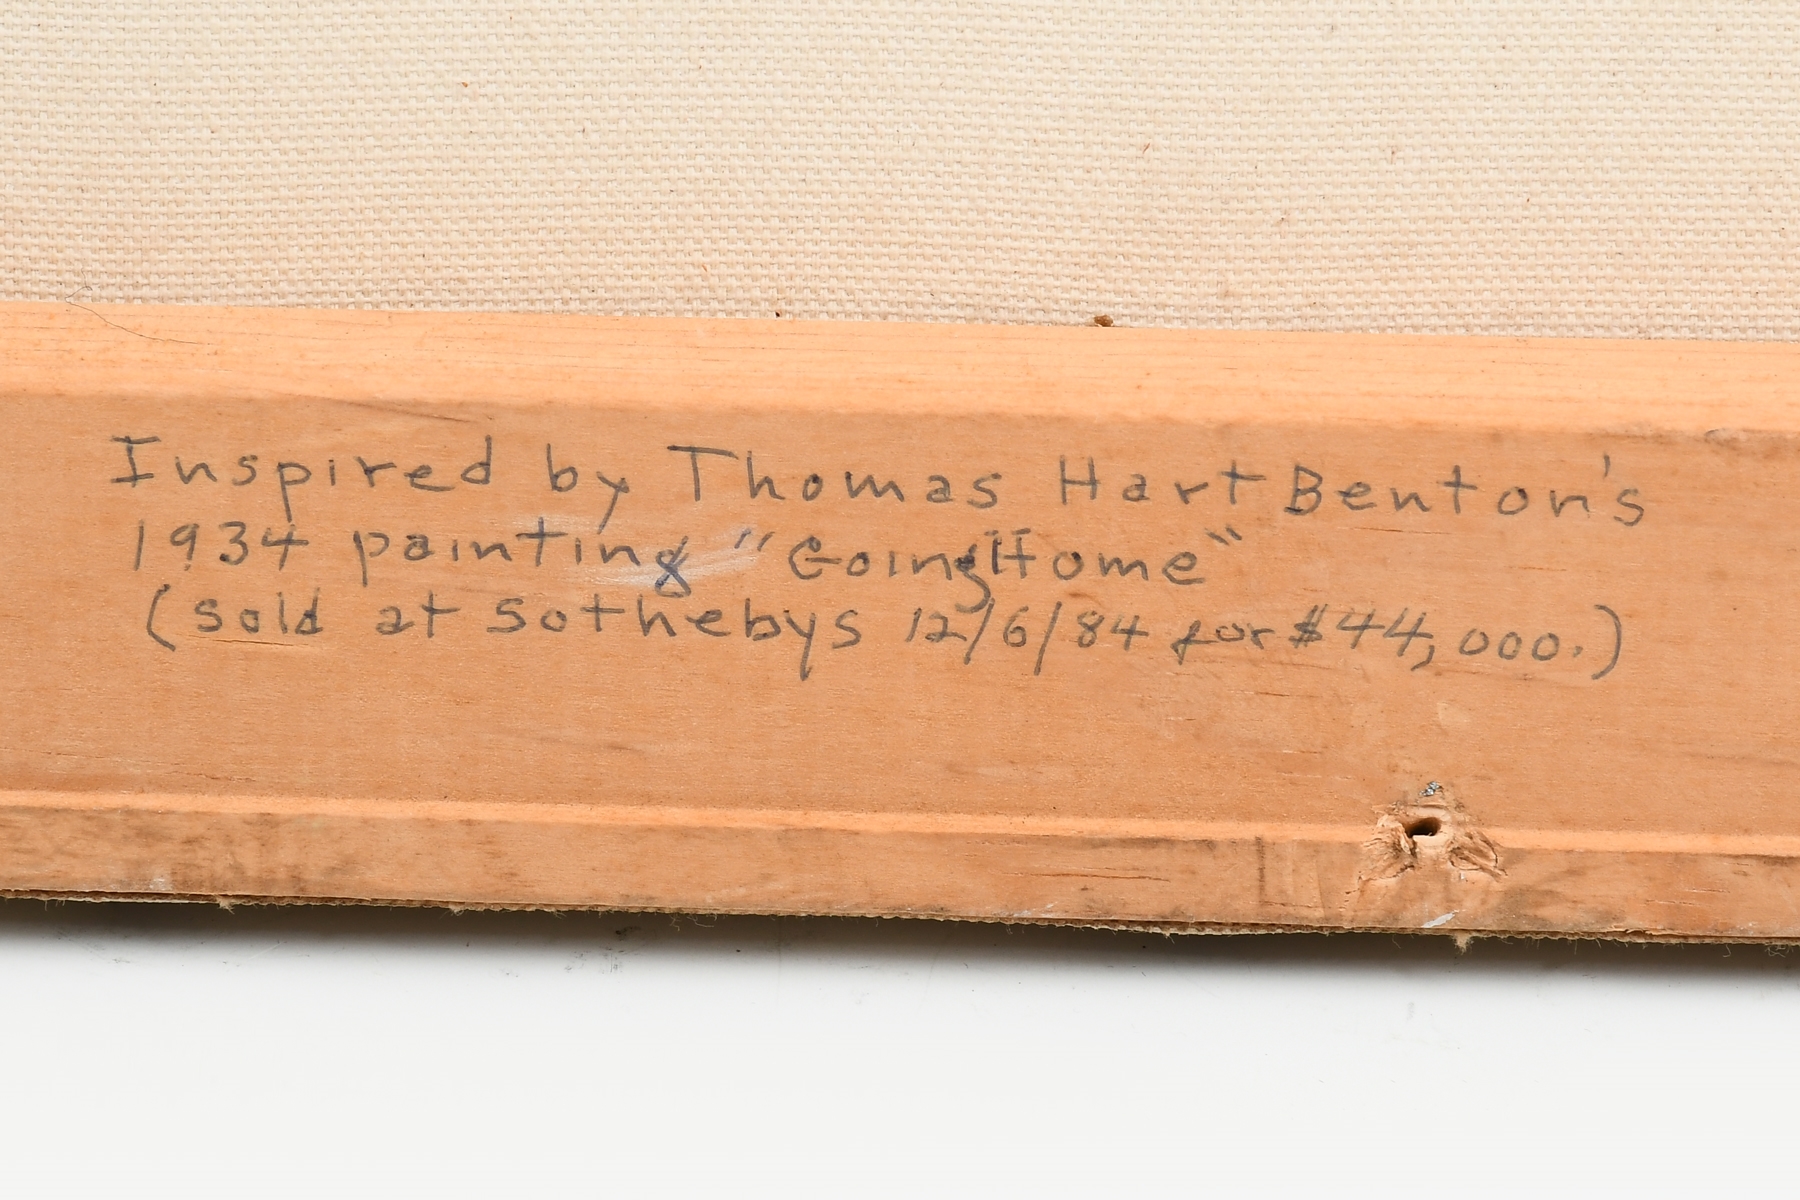 Inspired by Thomas Hart Benton's
1934 painting "Going Home"
(sold at Sothebys 12/6/84 for $44,000.)